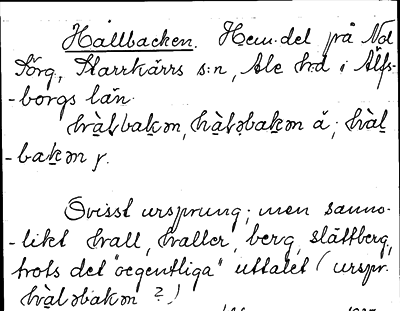 Hållbacken. Hem.del på Nol
Sörg, Starrkärrs s:n, Ale h:d i Älfs-
-borgs län.
hàḷbakən, hàḷəbakən ä; hàḷ
-bakən y.
Ovisst ursprung; men sanno-
-likt hall, haller, berg, slättberg,
trots det "oegentliga" uttalet (urspr.
hàləbakən ?)